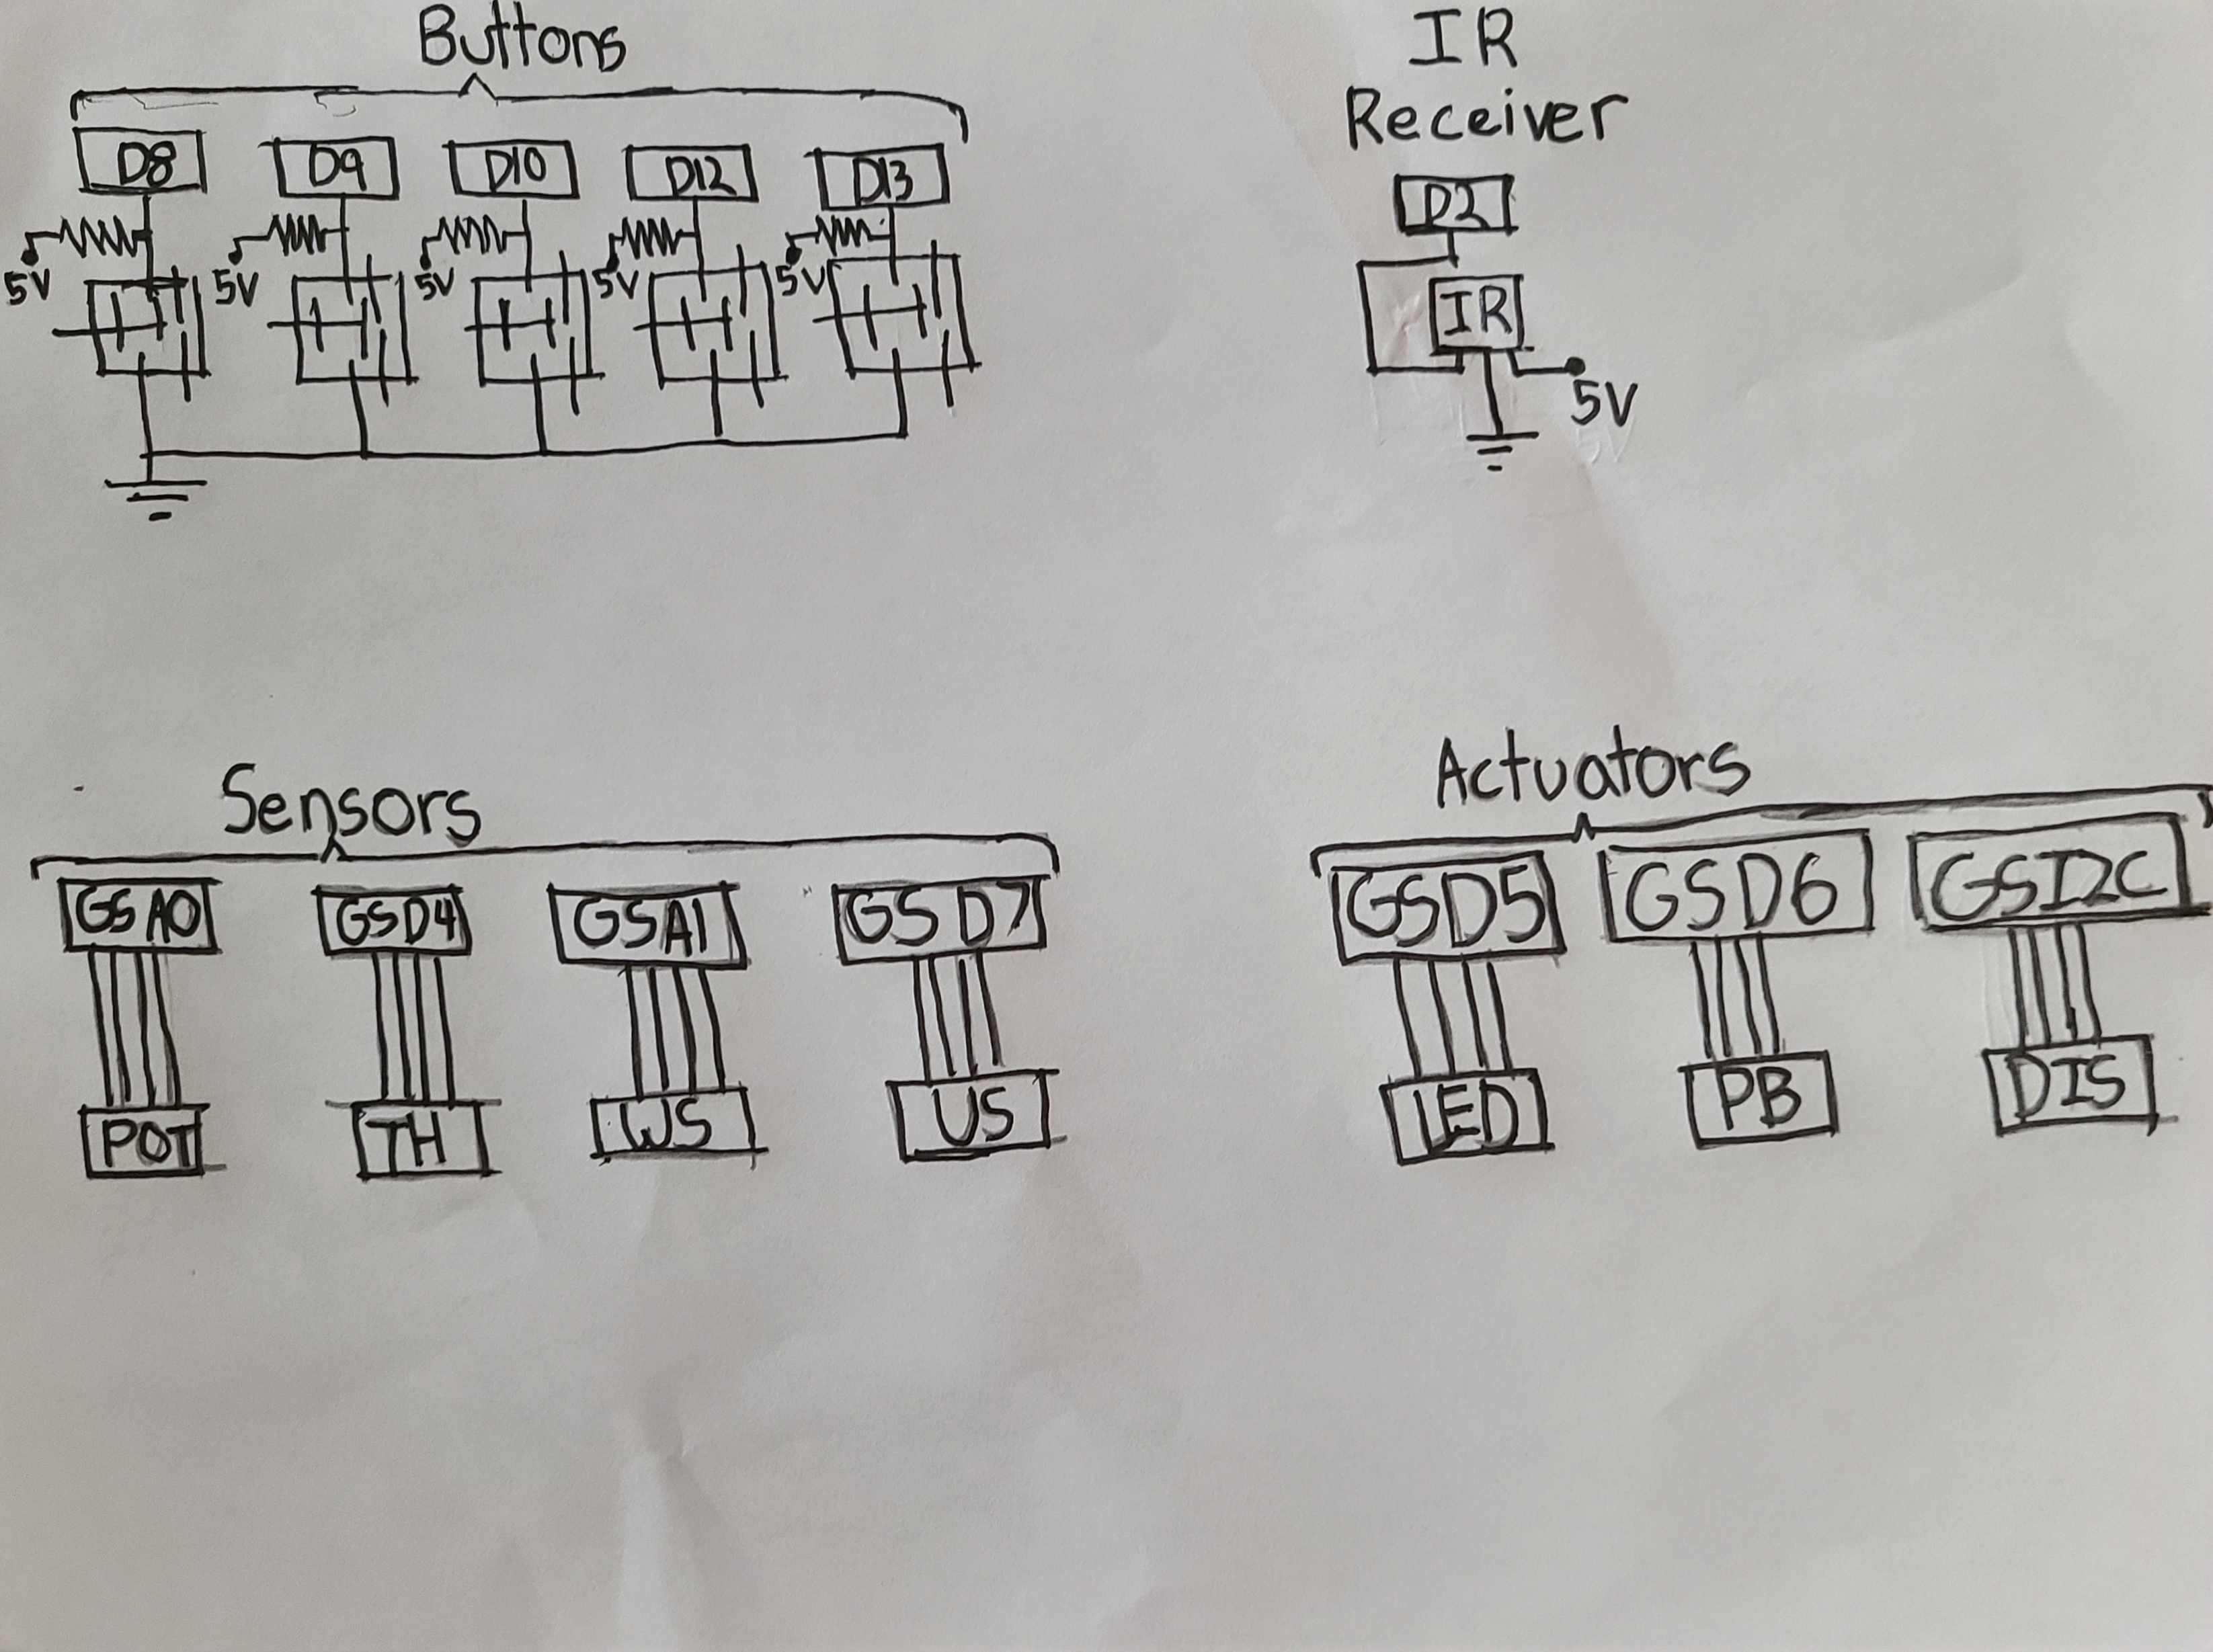 Buttons
D8 D9 D10 D12 D13
5V 5V 5V 5V 5V
IR
Receiver
D2
IR
5V
Sensors
GSA0 GSD4 GSA1 GSD7
POT TH WS US
Actuators
GSD5 GSD6 GSI2C
LED PB DIS